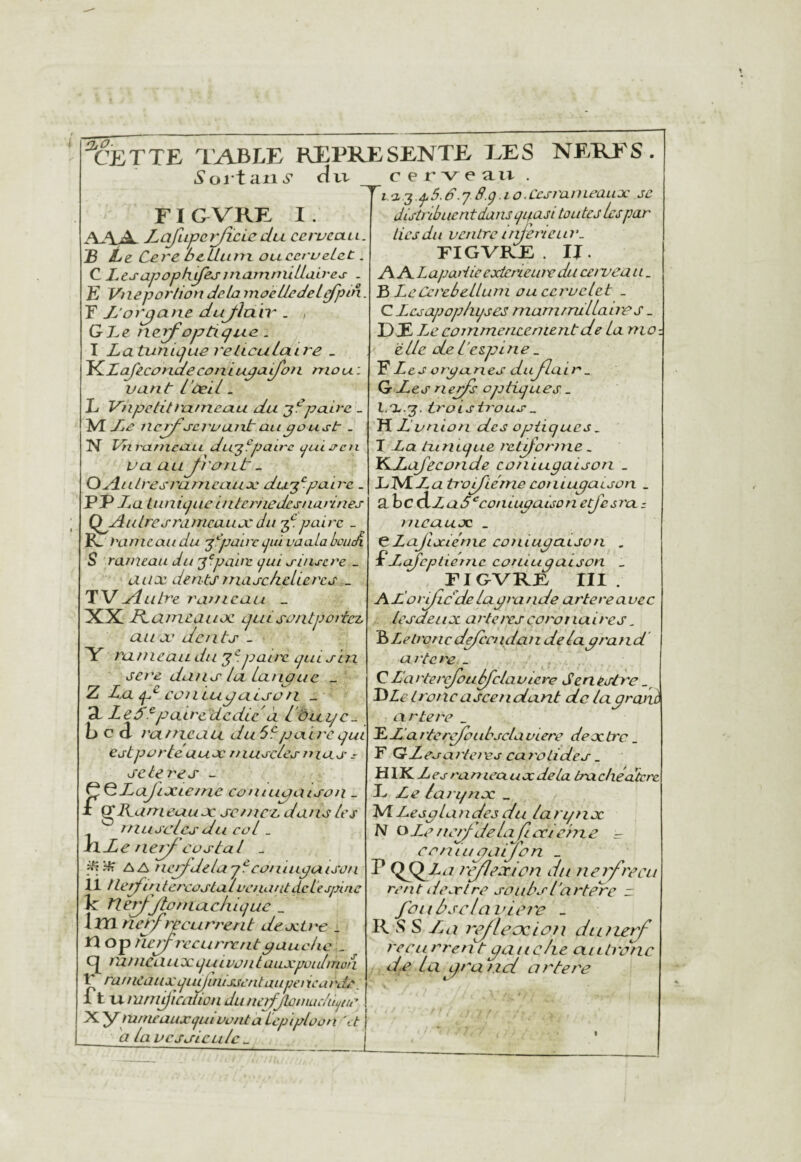 CETTE TABLE REPRESENTE LES NERFS.
Sortans du cerveau.
FIGVRE I.
AAA Lasuperficie du cerveau.
B Le Cerebellum ou cervelet.
C Les apophises mammillaires -
E Vne portion de la moelle de lespin.
F L'organe du flair -
G Le nerf optique.
I La tunique reticulaire -
K La seconde coniugaison mou:
vant l'œil -
L Vn petit rameau du 3e paire -
M Le nerf servant au goust -
N Vn rameau du 3e paire qui s'en
va au front -
O Autres rameaux du 3e paire -
PP La tunique interne des narines
Q Autres rameaux du 3e paire -
R rameau du 3e paire qui va a la
S rameau du 3e paire qui s'insere -
aux dents maschelieres -
TV Autre rameau -
XX Rameaux qui sont portez
aux dents -
Y rameau du 3e paire qui sin
sere dans la langue -
Z La 4e coniugaison -
a Le 5e paire dedie a l'Ouye -
b c d rameau du 5e paire qui
est porte aux muscles mas-
seteres -
e e La sixieme coniugaison -
f g Rameaux semez dans les
muscles du col -
h Le nerf costal -
ΔΔ nerf de la 7e coniugaison
ii nerf intercostal venant de lespine
k nerf stomachique -
l m nerf recurrent dextre -
n o p nerf recurrent gauche -
q rameaux qui vont aux poulmon
r rameaux qui finissent au pericarde
s t u ramification du nerf stomachique
x y rameaux qui vont a lepiploon et
a la vessicule -
1.2.3.4.5.6.7.8.9.10. Ces rameaux se
distribuent dans quasi toutes les par
ties du ventre inferieur -
FIGVRE. II.
AA La partie exterieure du cerveau -
B Le Cerebellum ou cervelet -
C Les apophyses mammillaires -
DE Le commencement de la mo-
elle de l'espine -
F Les organes du flair -
G Les nerfs optiques -
1.2.3. trois trous -
H L'vnion des optiques -
I La tunique retiforme -
K La seconde coniugaison -
LM La troisieme coniugaison -
a b c d La 5e coniugaison et ses ra-
meaux -
e La sixieme coniugaison -
f La septieme coniugaison -
FIGVRE III.
A L'orifice de la grande artere avec
les deux arteres coronaires.
B Le tronc descendan de la grand
artere -
C L'artere soubsclaviere Senestre -
D Le tronc ascendant de la grand
artere -
E L'artere soubsclaviere dextre -
F G Les arteres carotides -
HIK Les rameaux de la trache artere
L Le larynx -
M Les glandes du larynx
N O Le nerf de la sixieme -
coniugaison -
P QQ La reflexion du nerf recu
rent dextre soubs l'artere -
soubsclaviere -
R S S La reflexion du nerf
recurrent gauche au tronc
de la grand artere